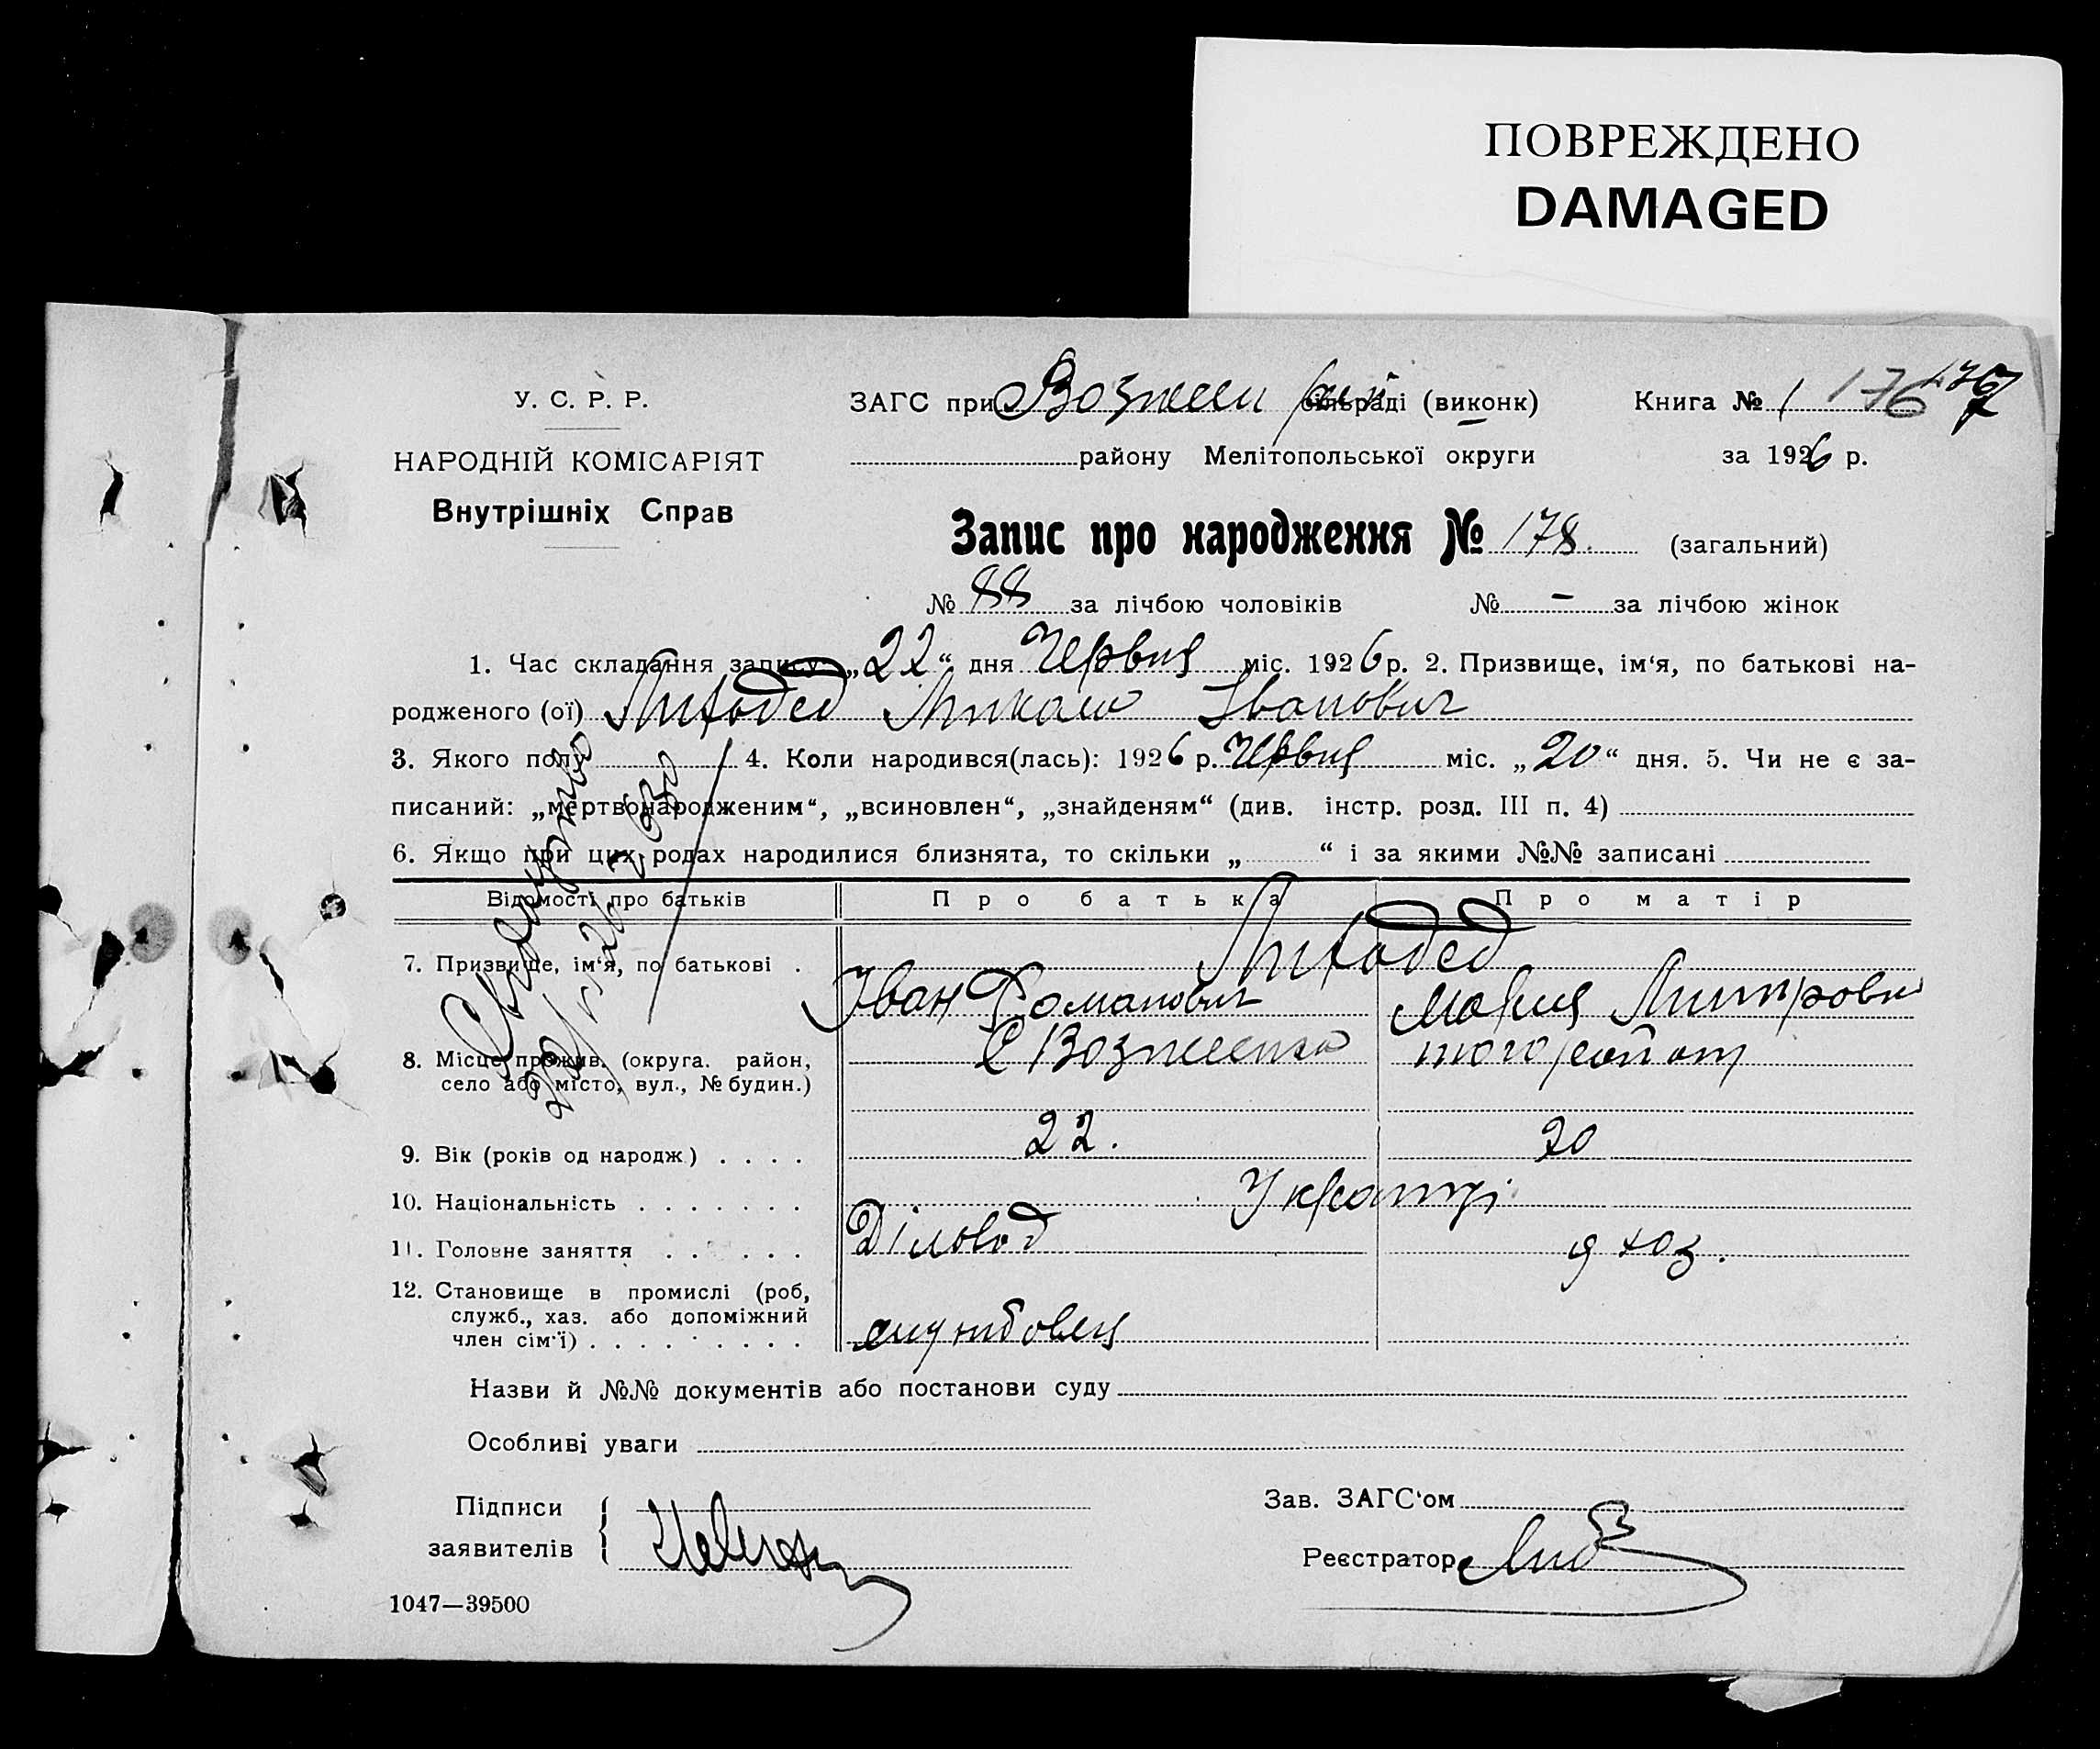 ПОВРЕЖДЕНО
DAMAGED
У. С. Р. Р.
НАРОДНІЙ КОМІСАРІЯТ
Внутрішніх Справ
ЗАГС при Вознесен рай сільраді (виконк)
району Мелітопольської округи
Книга № 1 176
за 1926 р.
Запис про народження № 178. (загальний)
№ 88 за лічбою чоловіків № – за лічбою жінок
1. Час складання запису „22“ дня Червня міс. 1926 р. 2. Призвище, ім‘я, по батькові на-
родженого (ої) Лиходед Микола Іванович
3. Якого полу 4. Коли народився(лась): 1926 р. Червня міс. „20“ дня. 5. Чи не є за-
писаний: „мертвонародженим“, „всиновлен“, „знайденям“ (див. інстр. розд. III п. 4)
6. Якщо при цих родах народилися близнята, то скільки „ “ і за якими №№ записані
Відомості про батьків Про батька Про матір
Лиходед
7. Призвище, ім‘я, по батькові . Іван Романович Мария Дмитровна
8. Місце прожив. (округа. район,
село або місто, вул., № будин.)
С Вознесенка
9. Вік (років од народж) . . . . 22. 20
10. Національність . . . . . . . Українці
11. Головне заняття . . . . . . Діловод д хоз.
12. Становище в промислі (роб,
служб., хаз. або допоміжний
член сім‘ї) . . . . . . . . .
службовец
Назви й №№ документів або постанови суду
Особливі уваги
Підписи
заявителів
Зав. ЗАГС‘ом
Реєстратор
1047—39500